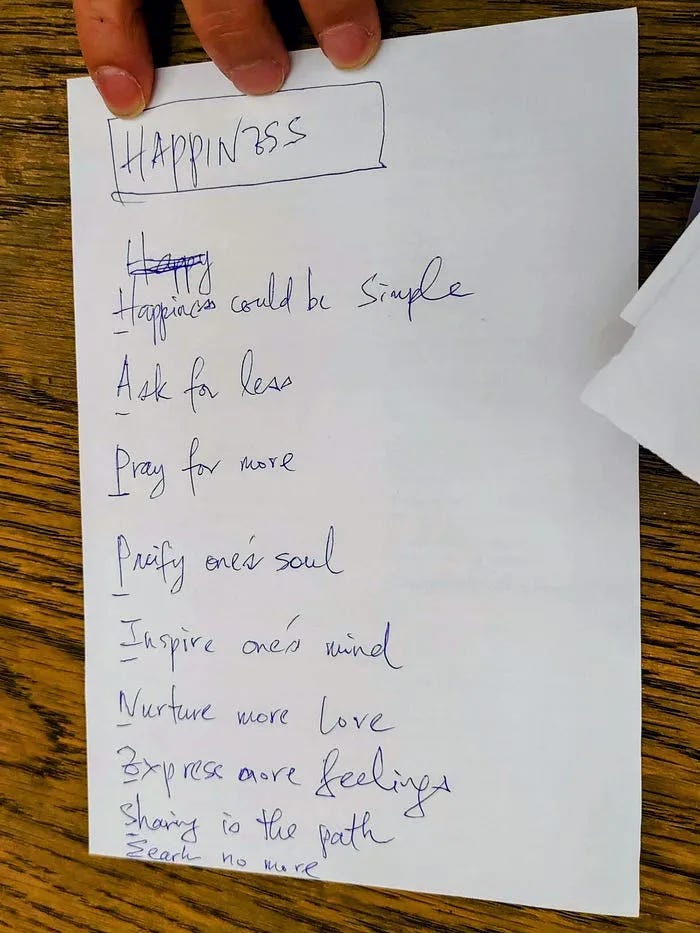 HAPPINESS
Happy
Happiness could be simple
Ask for less
Pray for more
Purify one's soul
Inspire one's mind
Nurture more love
Express more feelings
Sharing is the path
Search no more